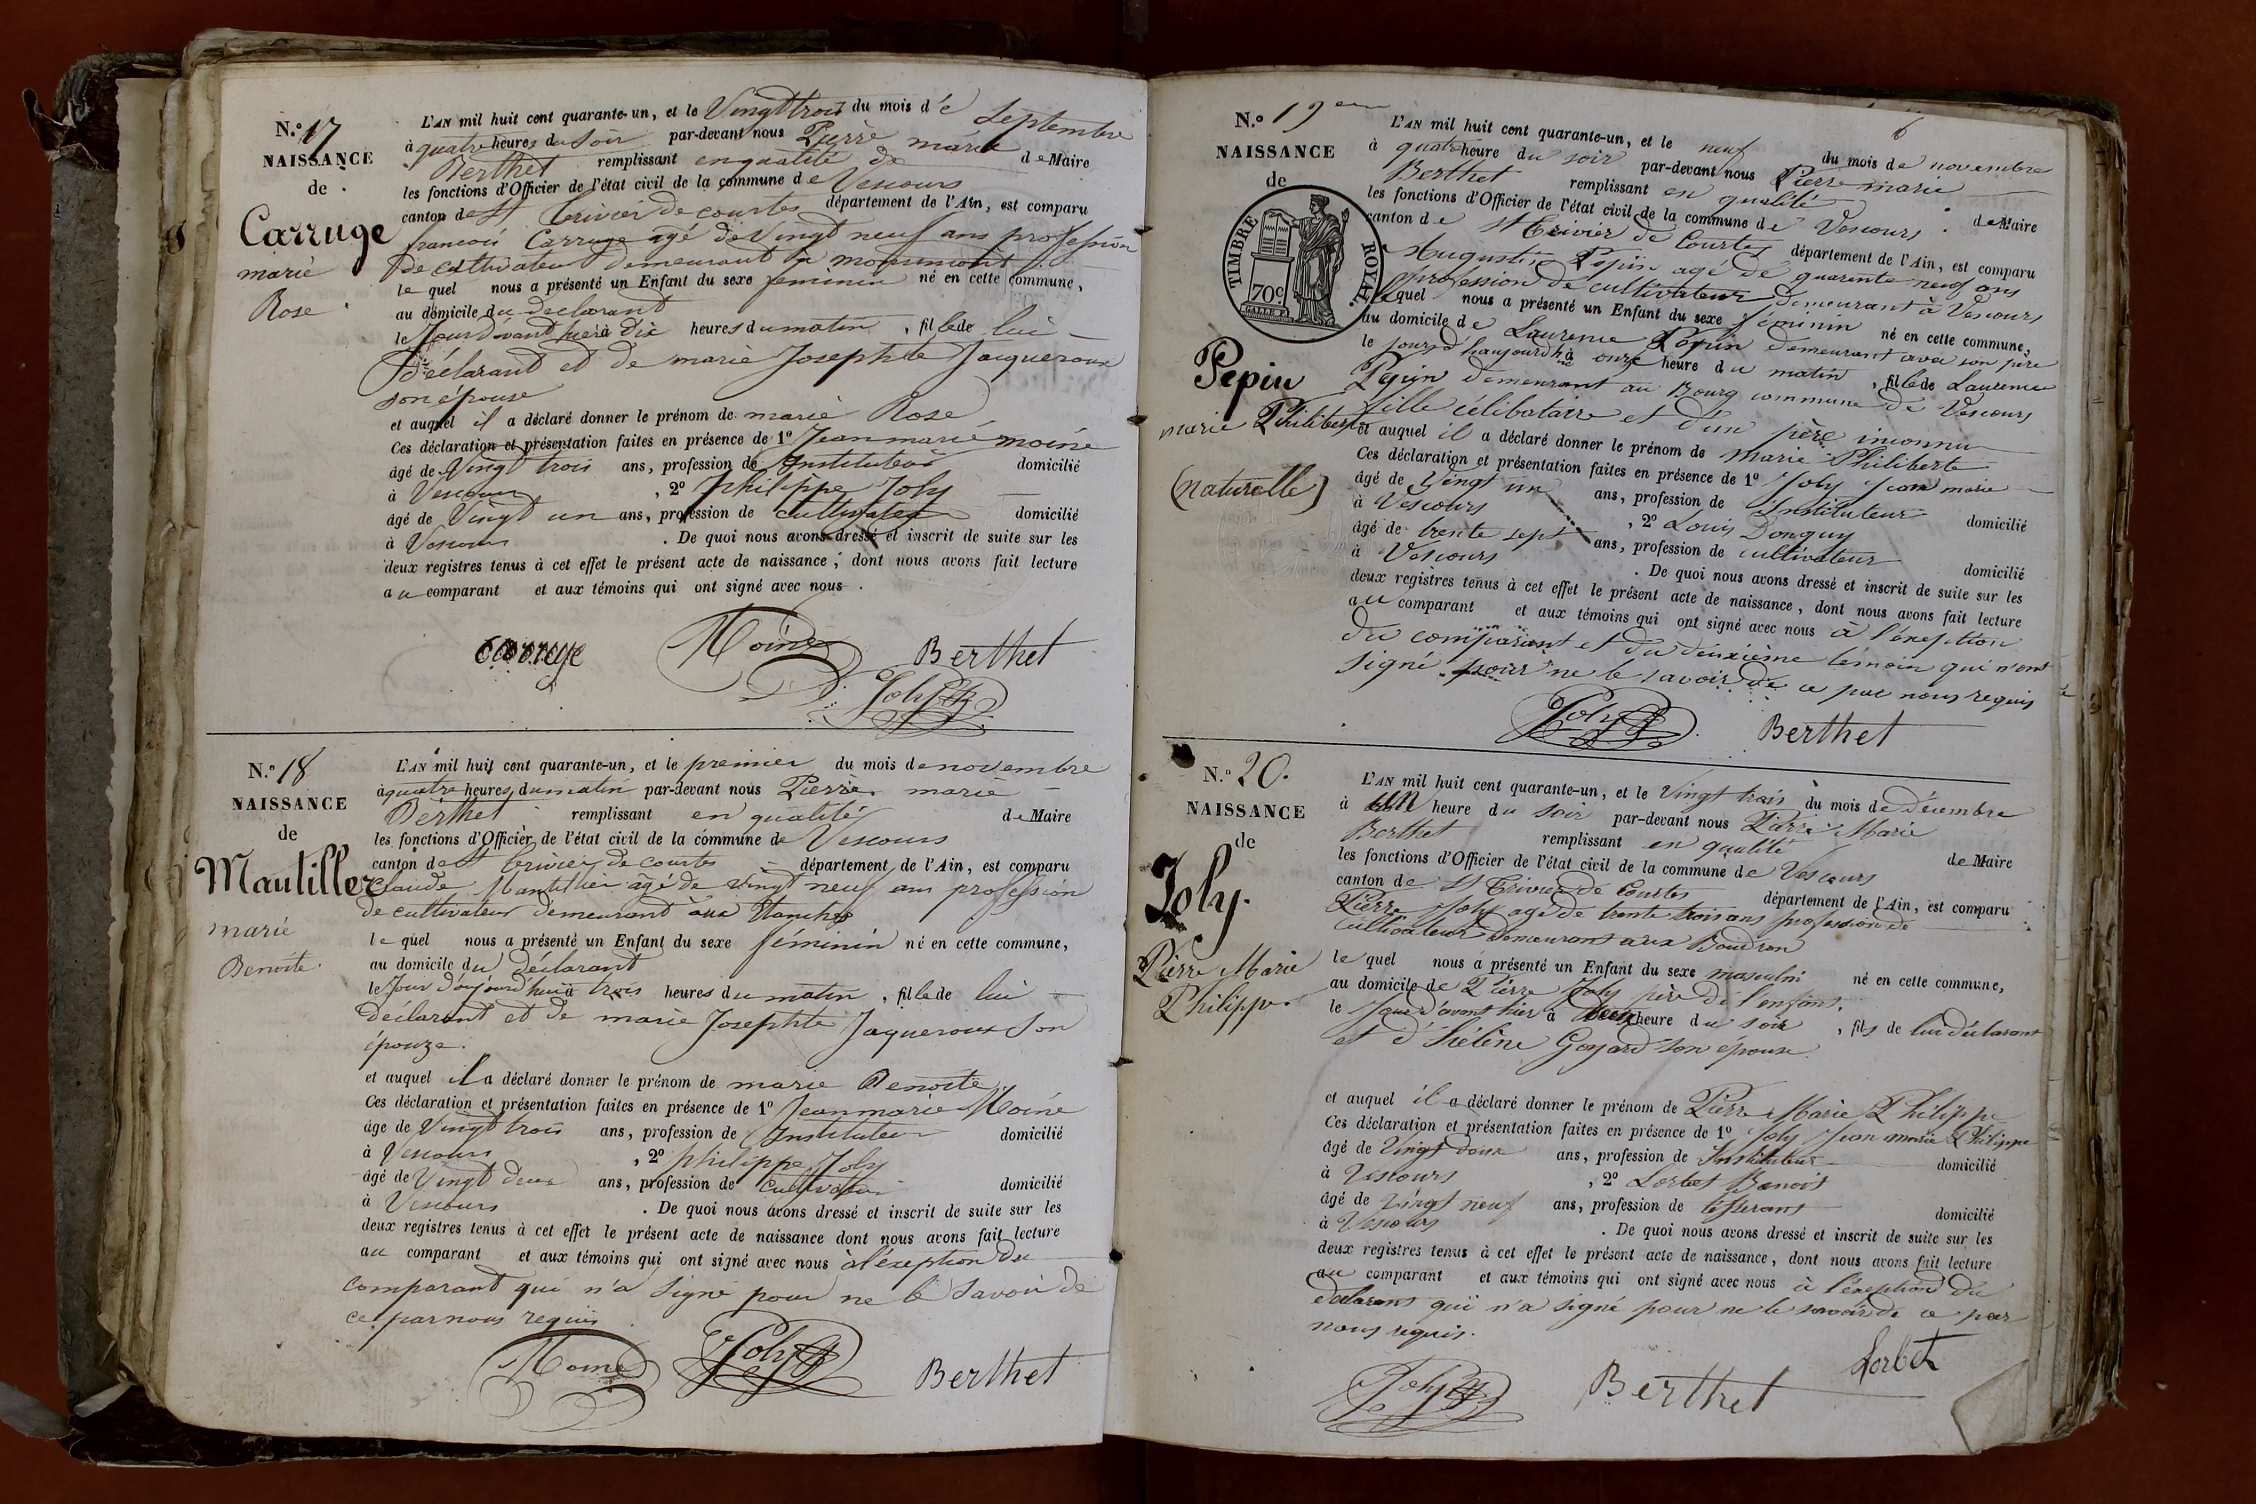 N.º 17
NAISSANCE
de
Carruge
marie
Rose
L'AN mil huit cent quarante-un, et le Vingt trois du mois de Septembre
à quatre heures du soir par-devant nous Pierre marie
Berthet remplissant en qualité de de Maire
les fonctions d'Officier de l'état civil de la commune de Vescours
canton de St Trivier de courtes département de l'Ain, est comparu
francois Carruge agé de Vingt neuf ans profession
de cultivateur demeurant a
le quel nous a présenté un Enfant du sexe feminin né en cette commune,
au domicile du declarant
le Jour d'avant hier à dix heures du matin, fille de lui
déclarant et de marie Josephte Jaqueroux
son épouse
et auquel il a déclaré donner le prénom de marie Rose
Ces déclaration et présentation faites en présence de 1º Jean marie moine
âgé de Vingt trois ans, profession de Instituteur domicilié
à Vescours, 2º philippe Joly
âgé de Vingt un ans, profession de cultivateur domicilié
à Vescours. De quoi nous avons dressé et inscrit de suite sur les
deux registres tenus à cet effet le présent acte de naissance, dont nous avons fait lecture
au comparant et aux témoins qui ont signé avec nous.
carruge Moine Berthet
Joly
N.º 18
NAISSANCE
de
Mantiller
marie
Benoite.
L'AN mil huit cent quarante-un, et le premier du mois de novembre
à quatre heures du matin par-devant nous Pierre marie
Berthet remplissant en qualité de Maire
les fonctions d'Officier de l'état civil de la commune de Vescours
canton de St Trivier de courtes département de l'Ain, est comparu
Claude Mantillier agé de Vingt neuf ans profession
de cultivateur demeurant aux
le quel nous a présenté un Enfant du sexe féminin né en cette commune,
au domicile du déclarant
le Jour d'aujourd'hui à trois heures du matin, fille de lui
déclarant et de marie Josephte Jaqueroux son
épouze.
et auquel il a déclaré donner le prénom de marie Benoite
Ces déclaration et présentation faites en présence de 1º Jean marie Moine
âge de Vingt trois ans, profession de Instituteur domicilié
à Vescours, 2º philippe Joly
âgé de Vingt deux ans, profession de cultivateur domicilié
à Vescours. De quoi nous avons dressé et inscrit de suite sur les
deux registres tenus à cet effet le présent acte de naissance dont nous avons fait lecture
au comparant et aux témoins qui ont signé avec nous à l'éxeption du
comparant qui n'a signé pour ne le savoir de
ce par nous requis
Moine Joly Berthet
N.º 19
NAISSANCE
de
TIMBRE ROYAL.
70c
Pepin
marie Philiberte
(naturelle)
6
L'AN mil huit cent quarante-un, et le neuf du mois de novembre
à quatre heure du soir par-devant nous Pierre marie
Berthet remplissant en qualité de Maire
les fonctions d'Officier de l'état civil de la commune de Vescours
canton de St Trivier de Courtes département de l'Ain, est comparu
Augustin Pepin agé de quarente neuf ans
profession de cultivateur demeurant à Vescours
Lequel nous a présenté un Enfant du sexe féminin né en cette commune,
au domicile de Laurence Pepin demeurant avec son père
le jours d'haujourd'h à onze heure du matin, fille de Laurence
Pepin demeurant au Bourg commune de Vescours
fille célibataire et d'un père inconnu
et auquel il a déclaré donner le prénom de Marie Philiberte
Ces déclaration et présentation faites en présence de 1º Joly Jean marie
âgé de Vingt un ans, profession de Instituteur domicilié
à Vescours, 2º Louis Donguy
âgé de trente sept ans, profession de cultivateur domicilié
à Vescours. De quoi nous avons dressé et inscrit de suite sur les
deux registres tenus à cet effet le présent acte de naissance, dont nous avons fait lecture
au comparant et aux témoins qui ont signé avec nous à l'éxeption
du comparant et du deuxième témoin qui n'ont
signé pour ne le savoir de ce par nous requis
Joly Berthet
N.º 20.
NAISSANCE
de
Joly.
Pierre Marie
Philippe.
L'AN mil huit cent quarante-un, et le Vingt trois du mois de Décembre
à un heure du soir par-devant nous Pierre Marie
Berthet remplissant en qualité de Maire
les fonctions d'Officier de l'état civil de la commune de Vescours
canton de St Trivier de Courtes département de l'Ain, est comparu
Pierre Joly agé de trente trois ans profession de
cultivateur demeurant aux Boudron
le quel nous a présenté un Enfant du sexe masculin né en cette commune,
au domicile de Pierre Joly père de l'enfant.
le Jour d'avant hier à heure du soir, fils de lui déclarant
et d'hélène Goyard son épouse.
et auquel il a déclaré donner le prénom de Pierre Marie Philippe
Ces déclaration et présentation faites en présence de 1º Joly Jean marie Philippe
âgé de Vingt deux ans, profession de Instituteur domicilié
à Vescours, 2º Lorbet Benoit
âgé de Vingt neuf ans, profession de tisserant domicilié
à Vescours. De quoi nous avons dressé et inscrit de suite sur les
deux registres tenus à cet effet le présent acte de naissance, dont nous avons fait lecture
au comparant et aux témoins qui ont signé avec nous à l'éxeption du
déclarant qui n'a signé pour ne le savoir de ce par
nous requis.
Lorbet
Joly Berthet